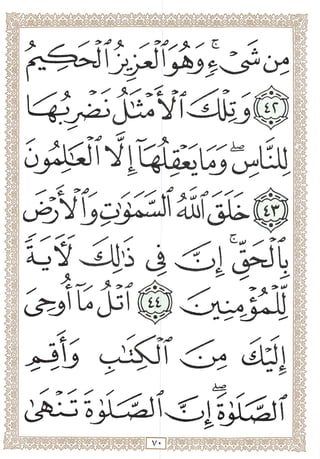 مِن شَىْءٍ ۚ وَهُوَ ٱلْعَزِيزُ ٱلْحَكِيمُ
٤٢ وَتِلْكَ ٱلْأَمْثَـٰلُ نَضْرِبُهَا
لِلنَّاسِ ۖ وَمَا يَعْقِلُهَآ إِلَّا ٱلْعَـٰلِمُونَ
٤٣ خَلَقَ ٱللَّهُ ٱلسَّمَـٰوَٰتِ وَٱلْأَرْضَ
بِٱلْحَقِّ ۚ إِنَّ فِى ذَٰلِكَ لَـَٔايَةً
لِّلْمُؤْمِنِينَ ٤٤ ٱتْلُ مَآ أُوحِىَ
إِلَيْكَ مِنَ ٱلْكِتَـٰبِ وَأَقِمِ
ٱلصَّلَوٰةَ ۖ إِنَّ ٱلصَّلَوٰةَ تَنْهَىٰ
٧٠